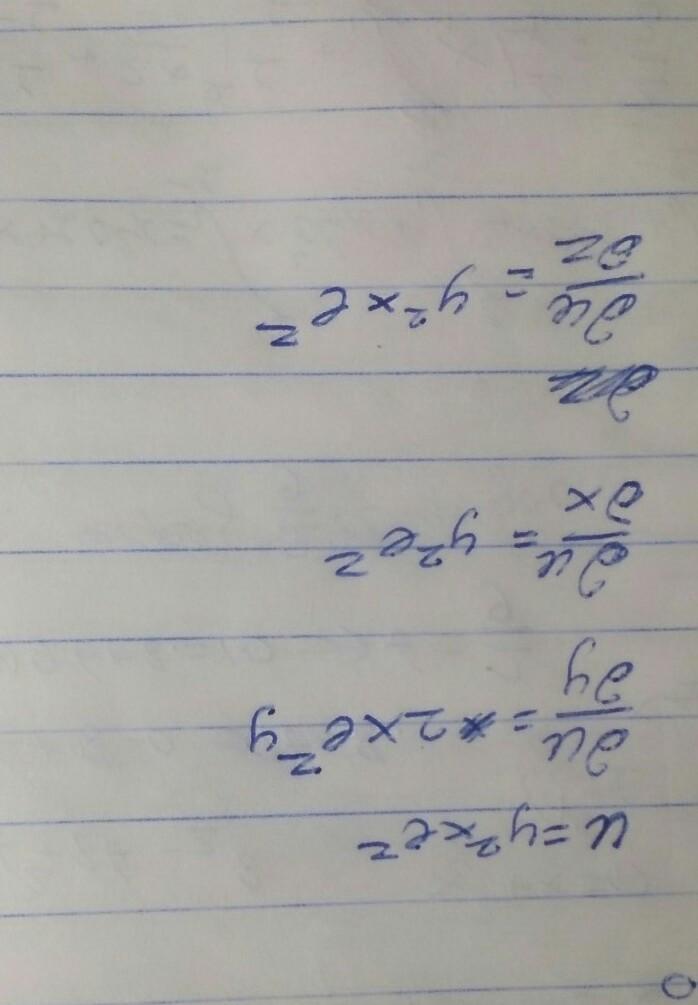 u = y²xe^z
∂u/∂y = 2xe^z y
∂u/∂x = y²e^z
∂u/∂z = y²xe^z